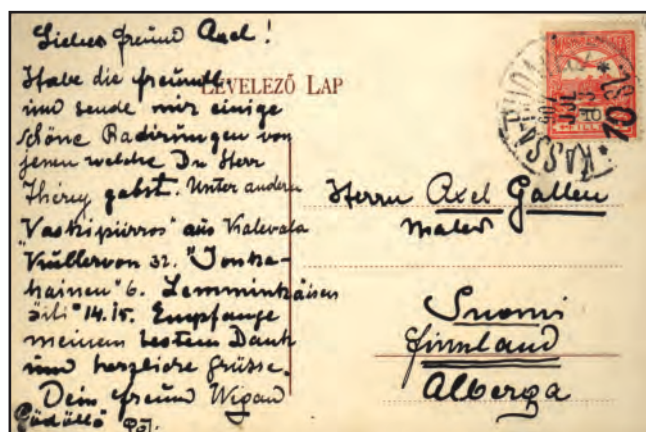 Liebes freund Axel!
Habe die freundl.
LEVELEZŐ LAP
und sende mir einige
schöne Radirungen von
jenen welche Du Herr
Théray gabst. Unter andern
Vaskipiirros" aus Kalevala
"Kullervon 32. "Jouka-
hainen" 6. Lemminkäisen
äiti" 14.15. Empfange
meinen besten Dank
und herzliche grüsse.
Dein freund Wigand
Gödöllő 907.
Herrn Axel Gallen
Maler
Suomi
finnland
Alberga
KASSA
907 JUL
10